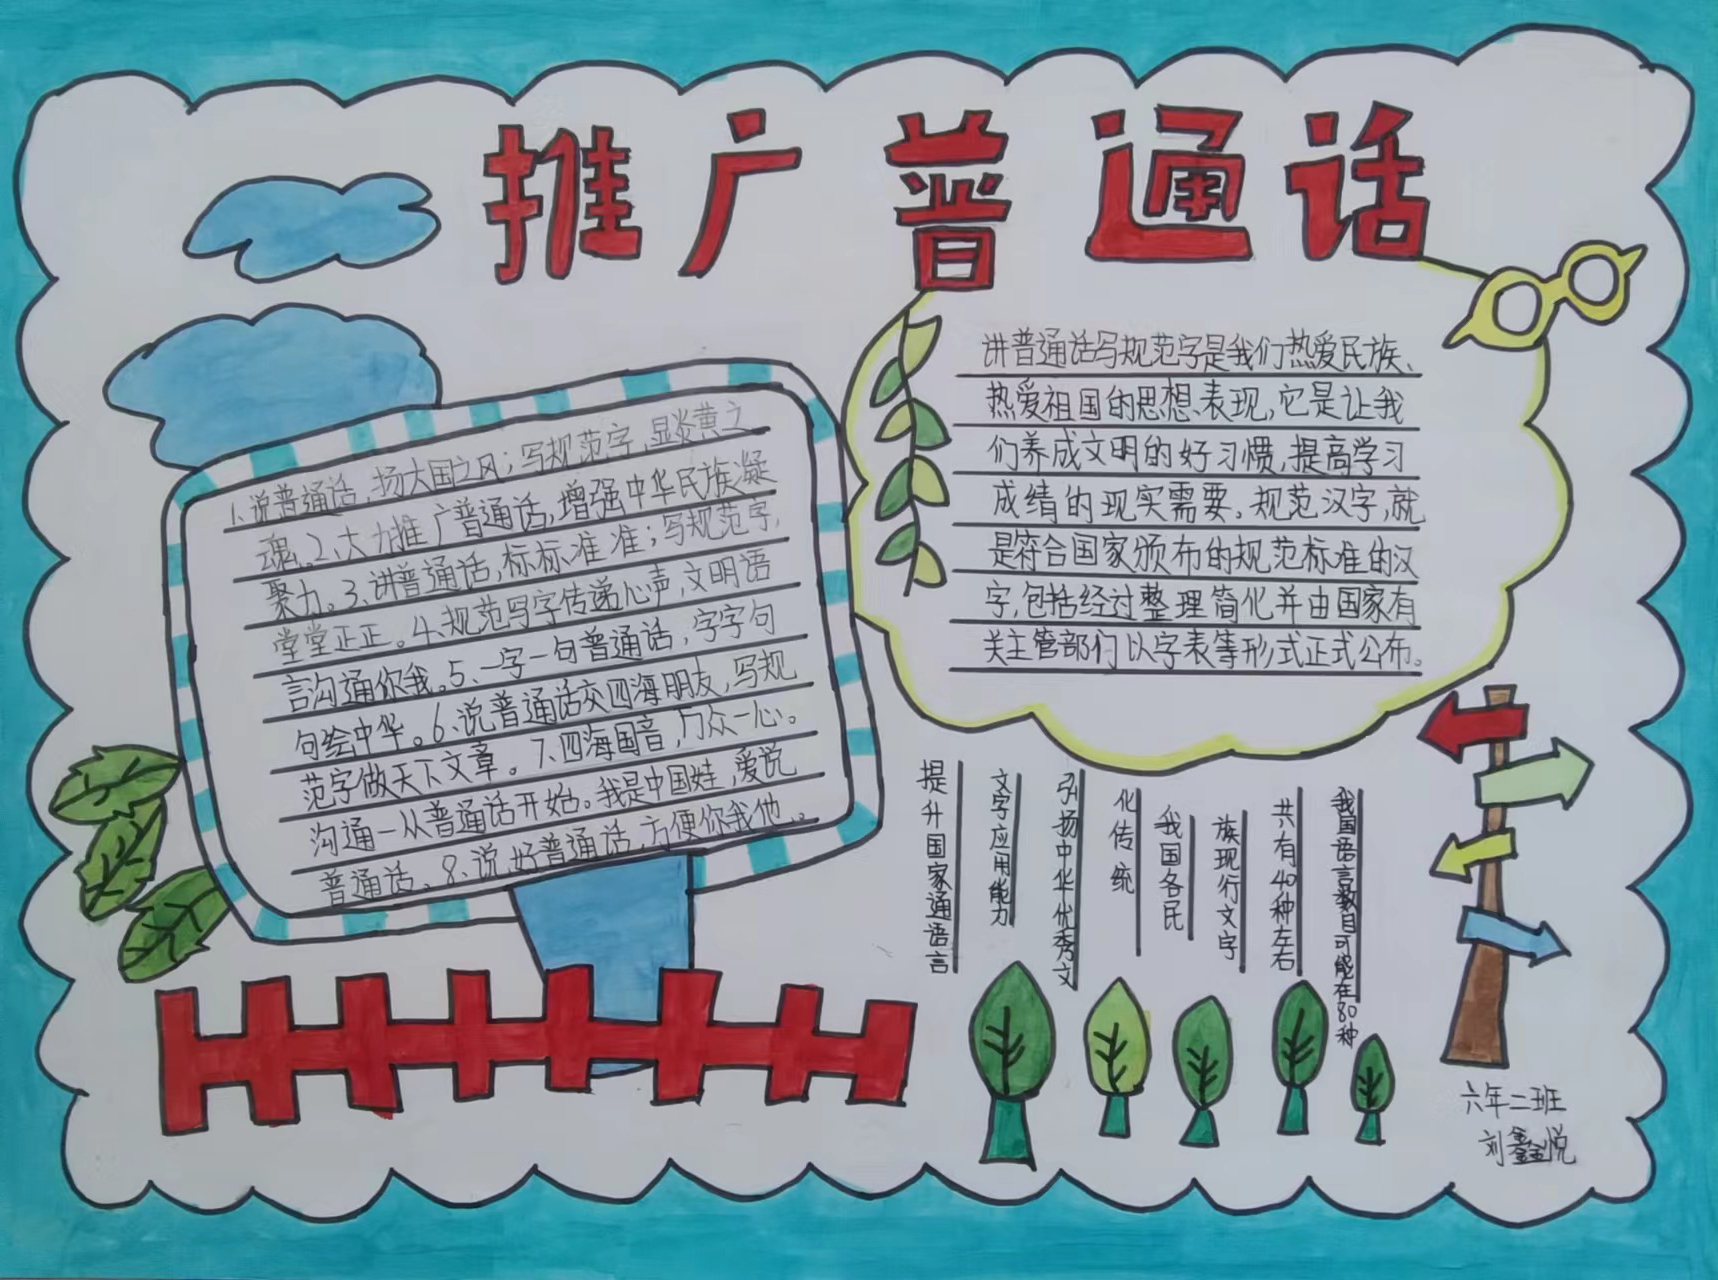 推广普通话
1、说普通话，扬大国之风；写规范字，显炎黄之
魂。2、大力推广普通话，增强中华民族凝
聚力。3、讲普通话，标标准准；写规范字，
堂堂正正。4、规范写字传递心声，文明语
言沟通你我。5、一字一句普通话，字字句
句绘中华。6、说普通话交四海朋友，写规
范字做天下文章。7、四海国音，万众一心。
沟通一从普通话开始。我是中国娃，爱说
普通话。8、说好普通话，方便你我他。
讲普通话写规范字是我们热爱民族、
热爱祖国的思想表现，它是让我
们养成文明的好习惯，提高学习
成绩的现实需要，规范汉字，就
是符合国家颁布的规范标准的汉
字，包括经过整理简化并由国家有
关主管部们以字表等形式正式公布。
提升国家通语言
文字应用能力
弘扬中华优秀文
化传统
我国各民
族现行文字
共有40种左右
我国语言数目可能在80种
六年二班
刘鑫悦